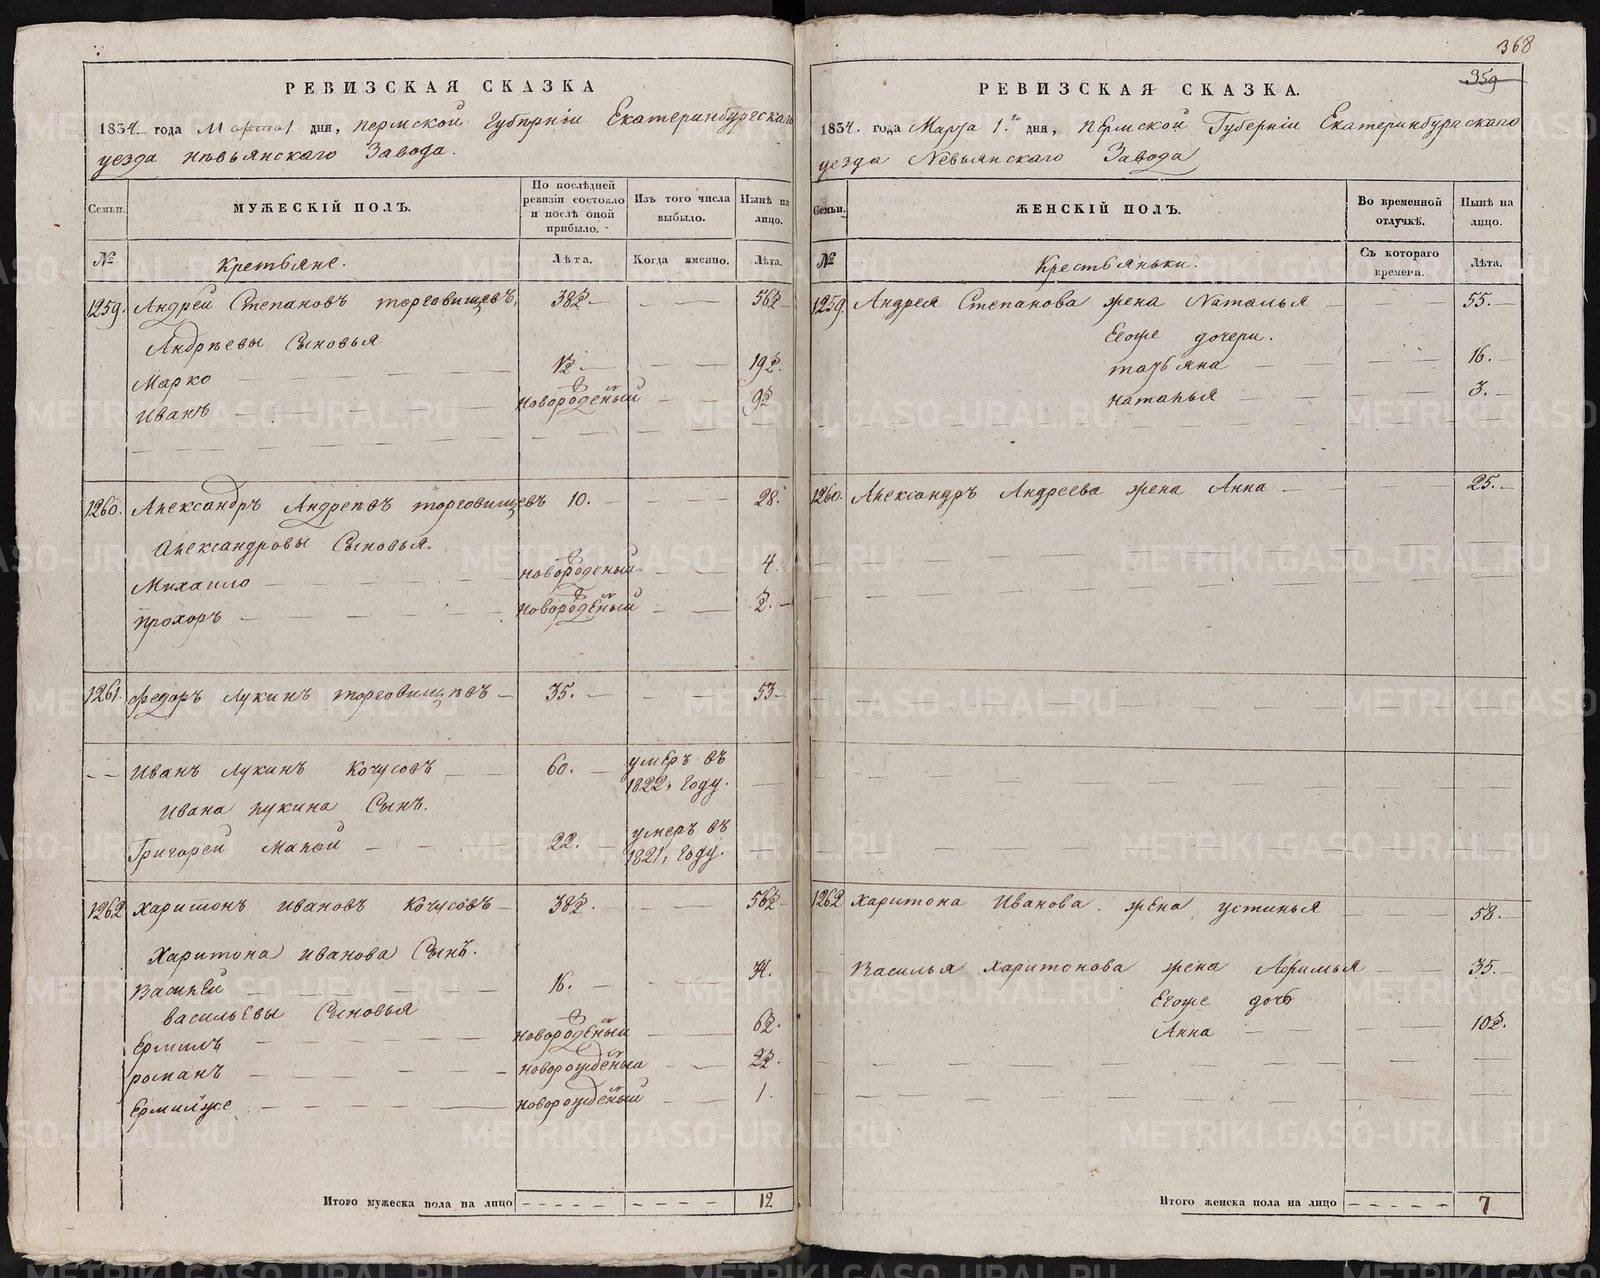 368
359
РЕВИЗСКАЯ СКАЗКА
1834 года Марта 1 дня, Пермской Губернiи Екатеринбургскаго
уезда Невьянскаго Завода.
Семьи.
МУЖЕСКІЙ ПОЛЪ.
По послѣдней ревизіи состояло и послѣ оной прибыло.
Изъ того числа выбыло.
Нынѣ на лицо.
№
Крестьяне.
Лѣта.
Когда именно.
Лѣта.
1259. Андрей Степановъ торговищевъ, 38½ 56½
Андрѣевы Сыновья
Марко 1½ 19½.
Иванъ новорожденый 9½
1260. Александръ Андрѣевъ торговищевъ 10. 28.
Александровы Сыновья.
Михаило новорожденый 4.
Прохоръ новорожденый 2.
1261. Федоръ Лукинъ торговищевъ 35. 53
Иванъ Лукинъ Кочусовъ 60. умеръ въ
1822, году.
Ивана лукина Сынъ.
Григорей малой 22. умеръ въ
1821, году.
1262 Харитонъ Ивановъ Кочусовъ 38½. 56½
Харитона иванова Сынъ.
Василей 16. 34.
васильевы Сыновья
Ермилъ новорожденый 6½.
романъ новорожденый 2½.
Ермилже новорожденый 1.
Итого мужеска пола на лицо 12
РЕВИЗСКАЯ СКАЗКА.
1834. года Марта 1.го дня, Пермской Губернiи Екатеринбургскаго
уезда Невьянскаго Завода
Семьи.
ЖЕНСКІЙ ПОЛЪ.
Во временной отлучкѣ.
Нынѣ на лицо.
№
Крестьяньки.
Съ котораго времени.
Лѣта.
1259. Андрея Степанова жена Наталья 55.
Егоже дочери.
татьяна 16.
наталья 3.
1260. Александръ Андреева жена Анна 25.
1262 Харитона Иванова жена устинья 58.
Василья харитонова жена Афимья 35.
Егоже дочь
Анна 10½.
Итого женска пола на лицо 7